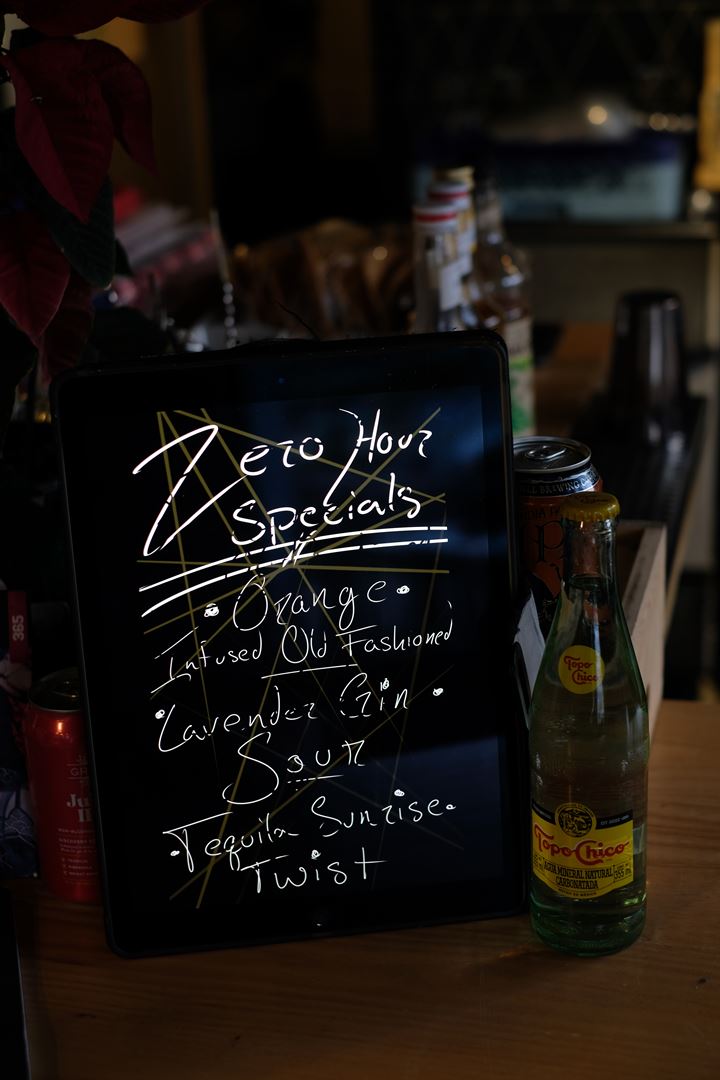 Zero Hour
Specials
• Orange •
Infused Old Fashioned
• Lavender Gin •
Sour
• Tequila Sunrise •
Twist
365
BREWING
Topo
Chico
Topo Chico
AGUA MINERAL NATURAL
CARBONATADA
355 ml